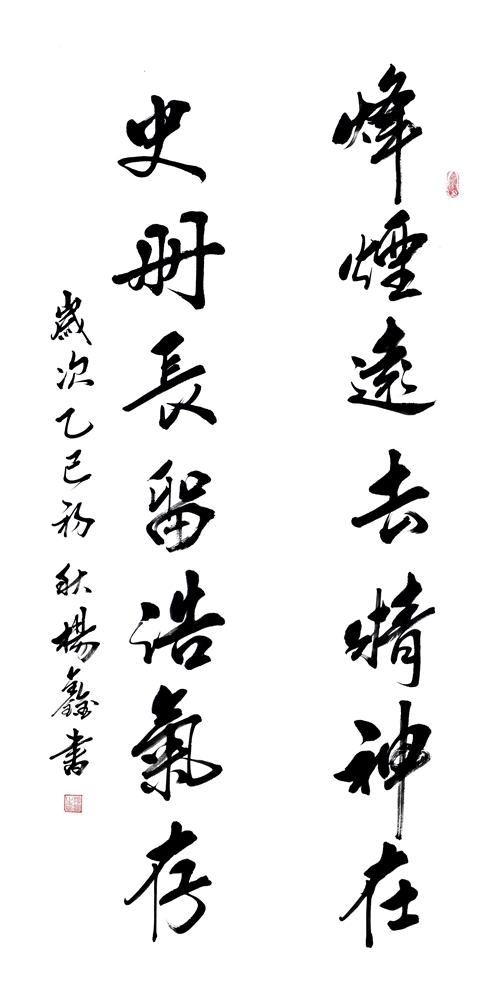 烽煙遠去精神在
史册長留浩氣存
歲次乙巳初秋楊鑫書